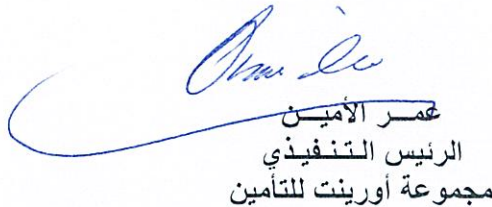 عمـــر الأميـــن
الرئيس التـنـفـيـذي
مجموعة أورينت للتأمين